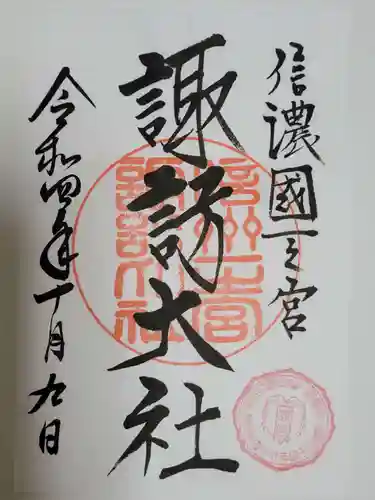 信濃國一之宮
諏訪大社
令和四年十月九日